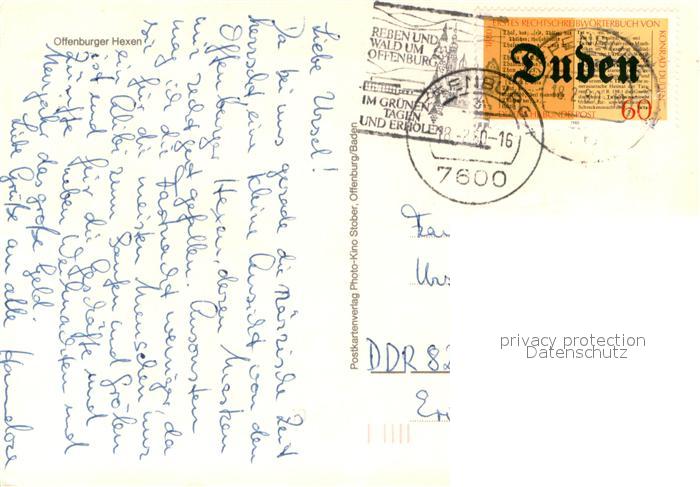 Offenburger Hexen
Liebe Ursel!
Da bei uns gerade die närrische Zeit
herrscht eine kleine Ansicht von den
Offenburger Hexen, deren Masken
mir sehr gut gefallen. Ansonsten
mag ich die Fastnacht weniger, da
sie für die meisten Menschen nur
ein Alibi zum Saufen und Grölen
ist und für die Geschäfte und
Zünfte neben Weihnachten und
das große Geld.
Liebe Grüße an alle Hannelore
Postkartenverlag Photo-Kino Stober, Offenburg/Baden
REBEN UND
WALD UM
OFFENBURG
IM GRÜNEN
TAGEN
UND ERHOLEN
OFFENBURG
-16
7600
ERSTES RECHTSCHREIBWÖRTERBUCH VON
KONRAD DUDEN
Duden
60
BUNDESPOST
DDR 82
privacy protection
Datenschutz